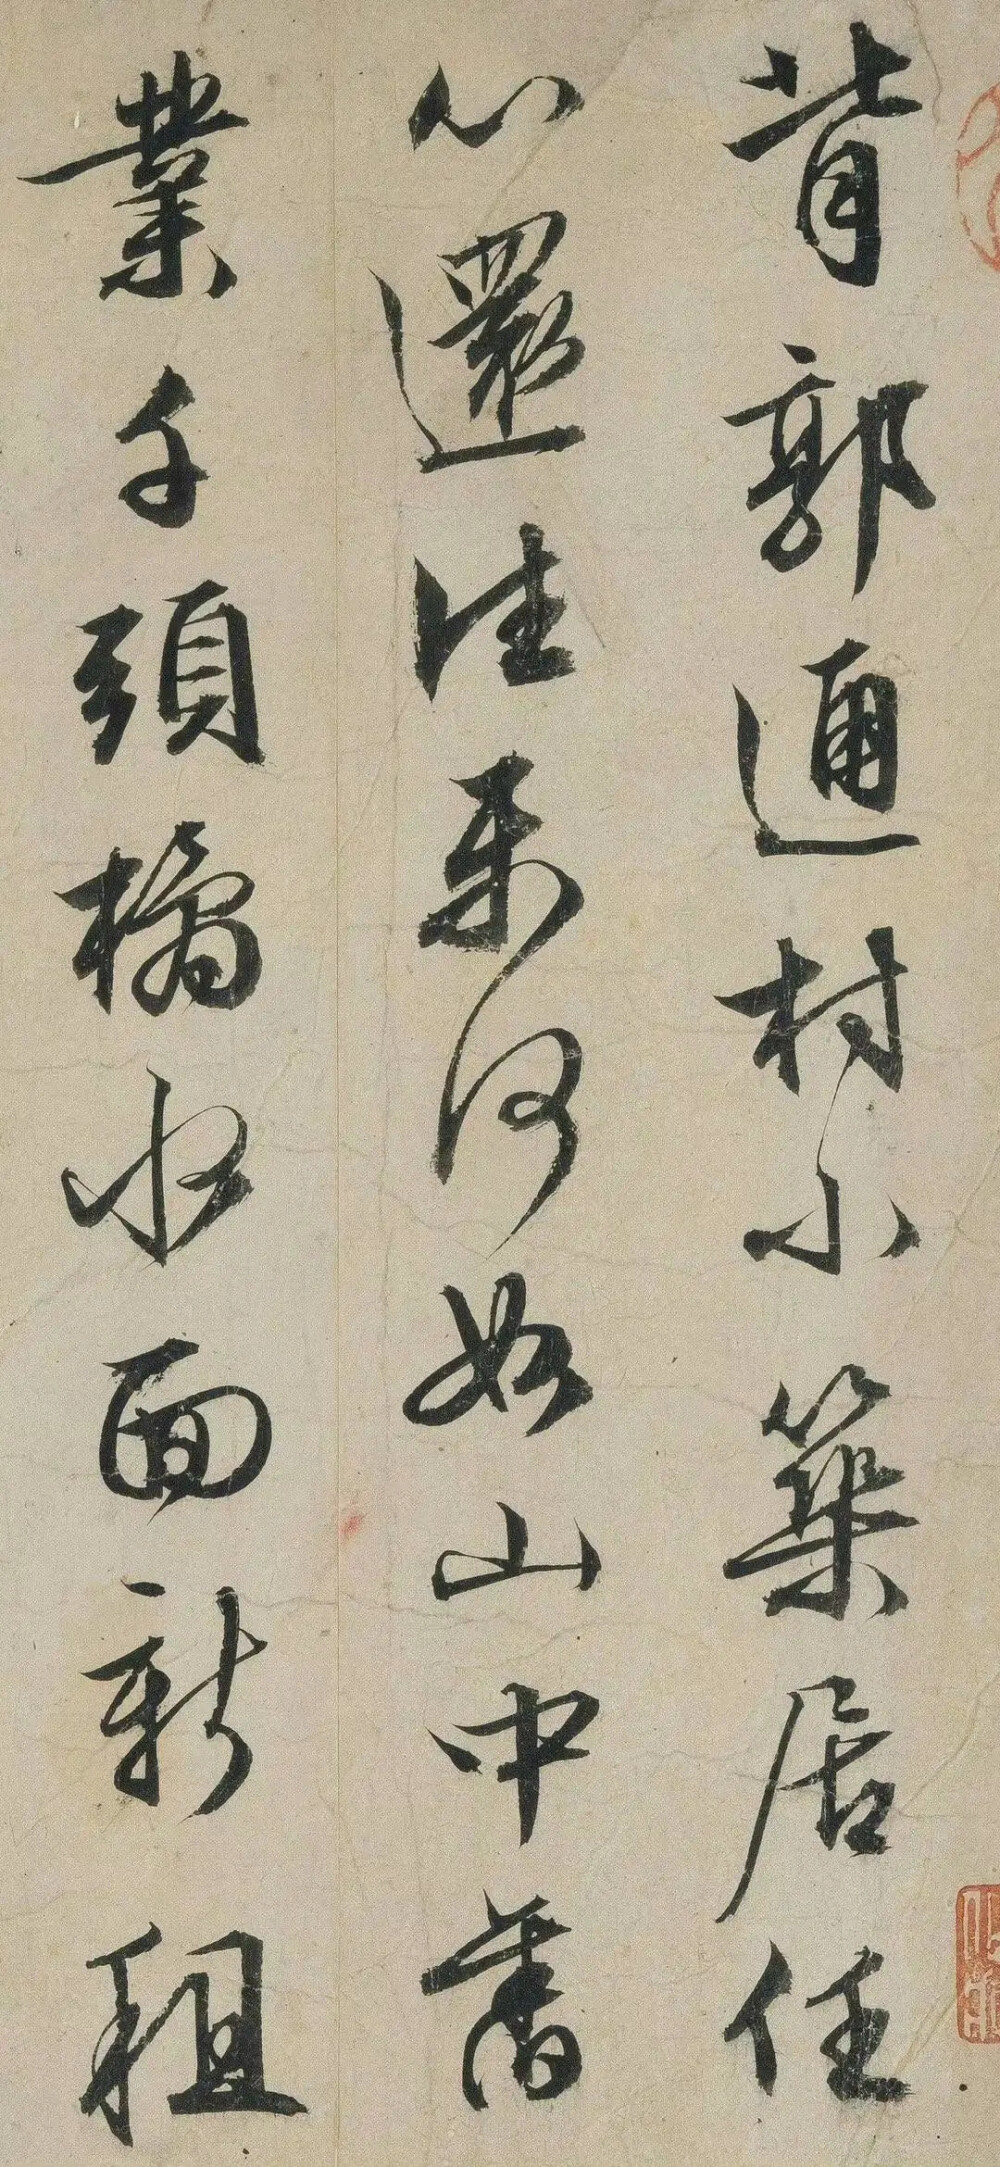 背郭通村小築居任
心還往來何如山中舊
業千頭橘水面新租